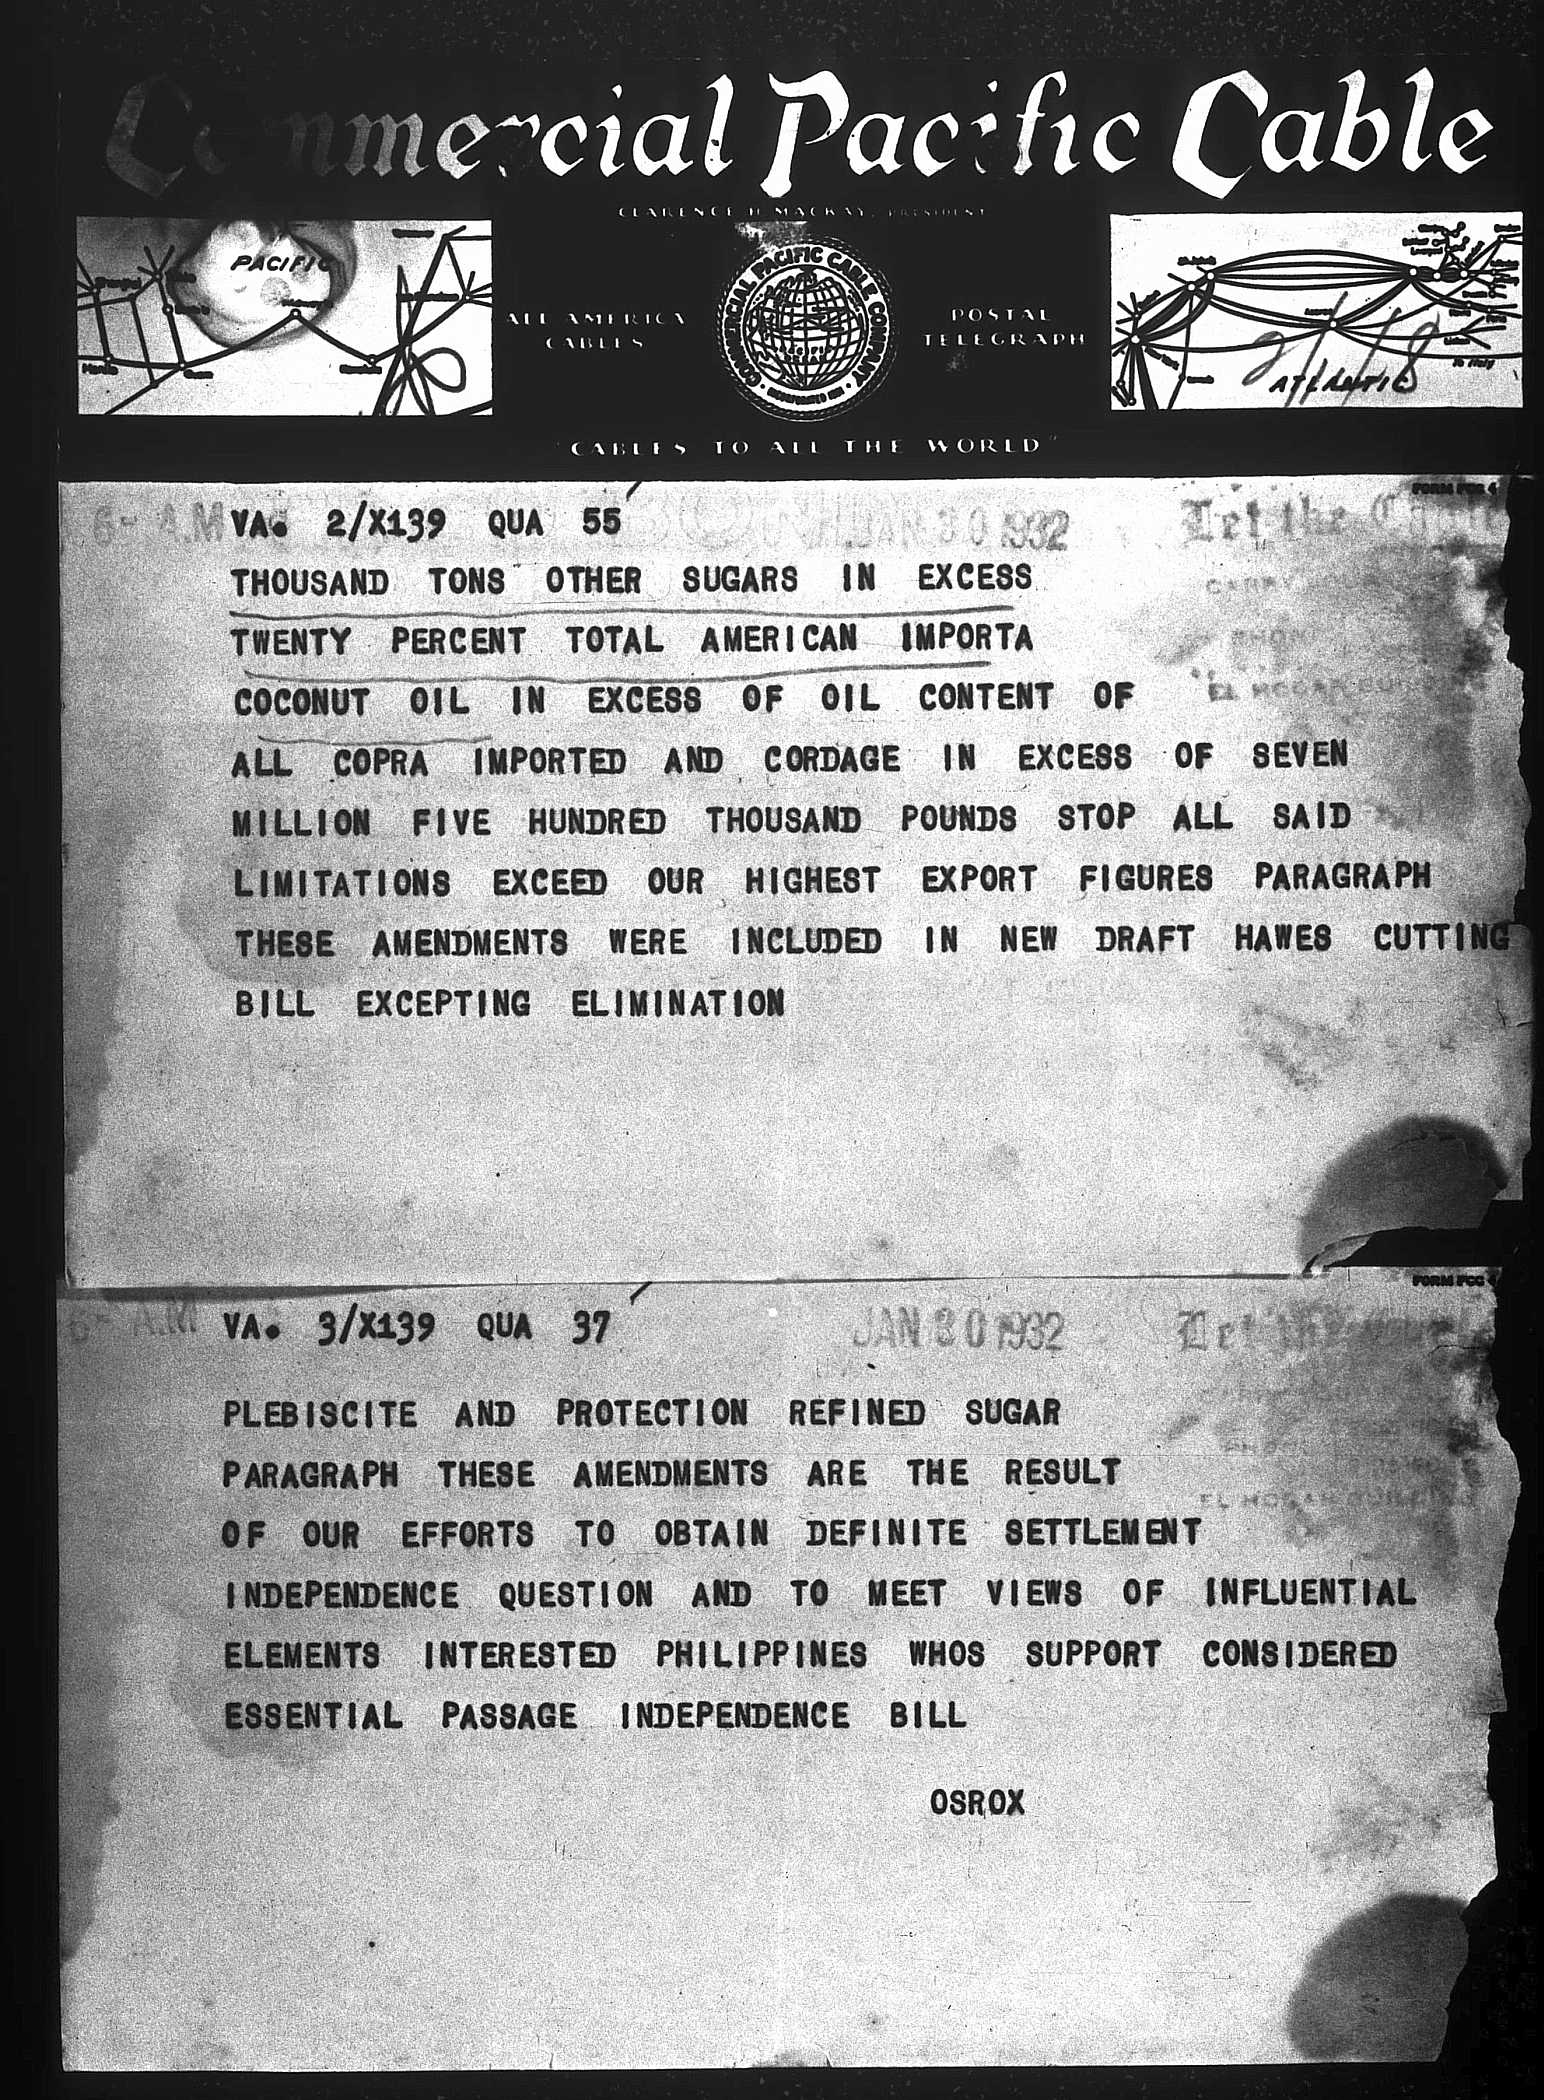 Commercial Pacific Cable
CLARENCE H. MACKAY, PRESIDENT
PACIFIC
Manila
Guam
Honolulu
ALL AMERICA
CABLES
COMMERCIAL PACIFIC CABLE COMPANY
INCORPORATED
POSTAL
TELEGRAPH
Azores
To Italy
ATLANTIC
2/1/8
"CABLES TO ALL THE WORLD"
FORM PCC 4
6- A.M VA. 2/X139 QUA 55 JAN 30 1932 Let the
THOUSAND TONS OTHER SUGARS IN EXCESS
TWENTY PERCENT TOTAL AMERICAN IMPORTA
COCONUT OIL IN EXCESS OF OIL CONTENT OF
EL HOGAR BUILDING
ALL COPRA IMPORTED AND CORDAGE IN EXCESS OF SEVEN
MILLION FIVE HUNDRED THOUSAND POUNDS STOP ALL SAID
LIMITATIONS EXCEED OUR HIGHEST EXPORT FIGURES PARAGRAPH
THESE AMENDMENTS WERE INCLUDED IN NEW DRAFT HAWES CUTTING
BILL EXCEPTING ELIMINATION
FORM PCC 4
6- A.M VA. 3/X139 QUA 37 JAN 30 1932 Let the
PLEBISCITE AND PROTECTION REFINED SUGAR
PARAGRAPH THESE AMENDMENTS ARE THE RESULT
EL HOGAR BUILDING
OF OUR EFFORTS TO OBTAIN DEFINITE SETTLEMENT
INDEPENDENCE QUESTION AND TO MEET VIEWS OF INFLUENTIAL
ELEMENTS INTERESTED PHILIPPINES WHOS SUPPORT CONSIDERED
ESSENTIAL PASSAGE INDEPENDENCE BILL
OSROX